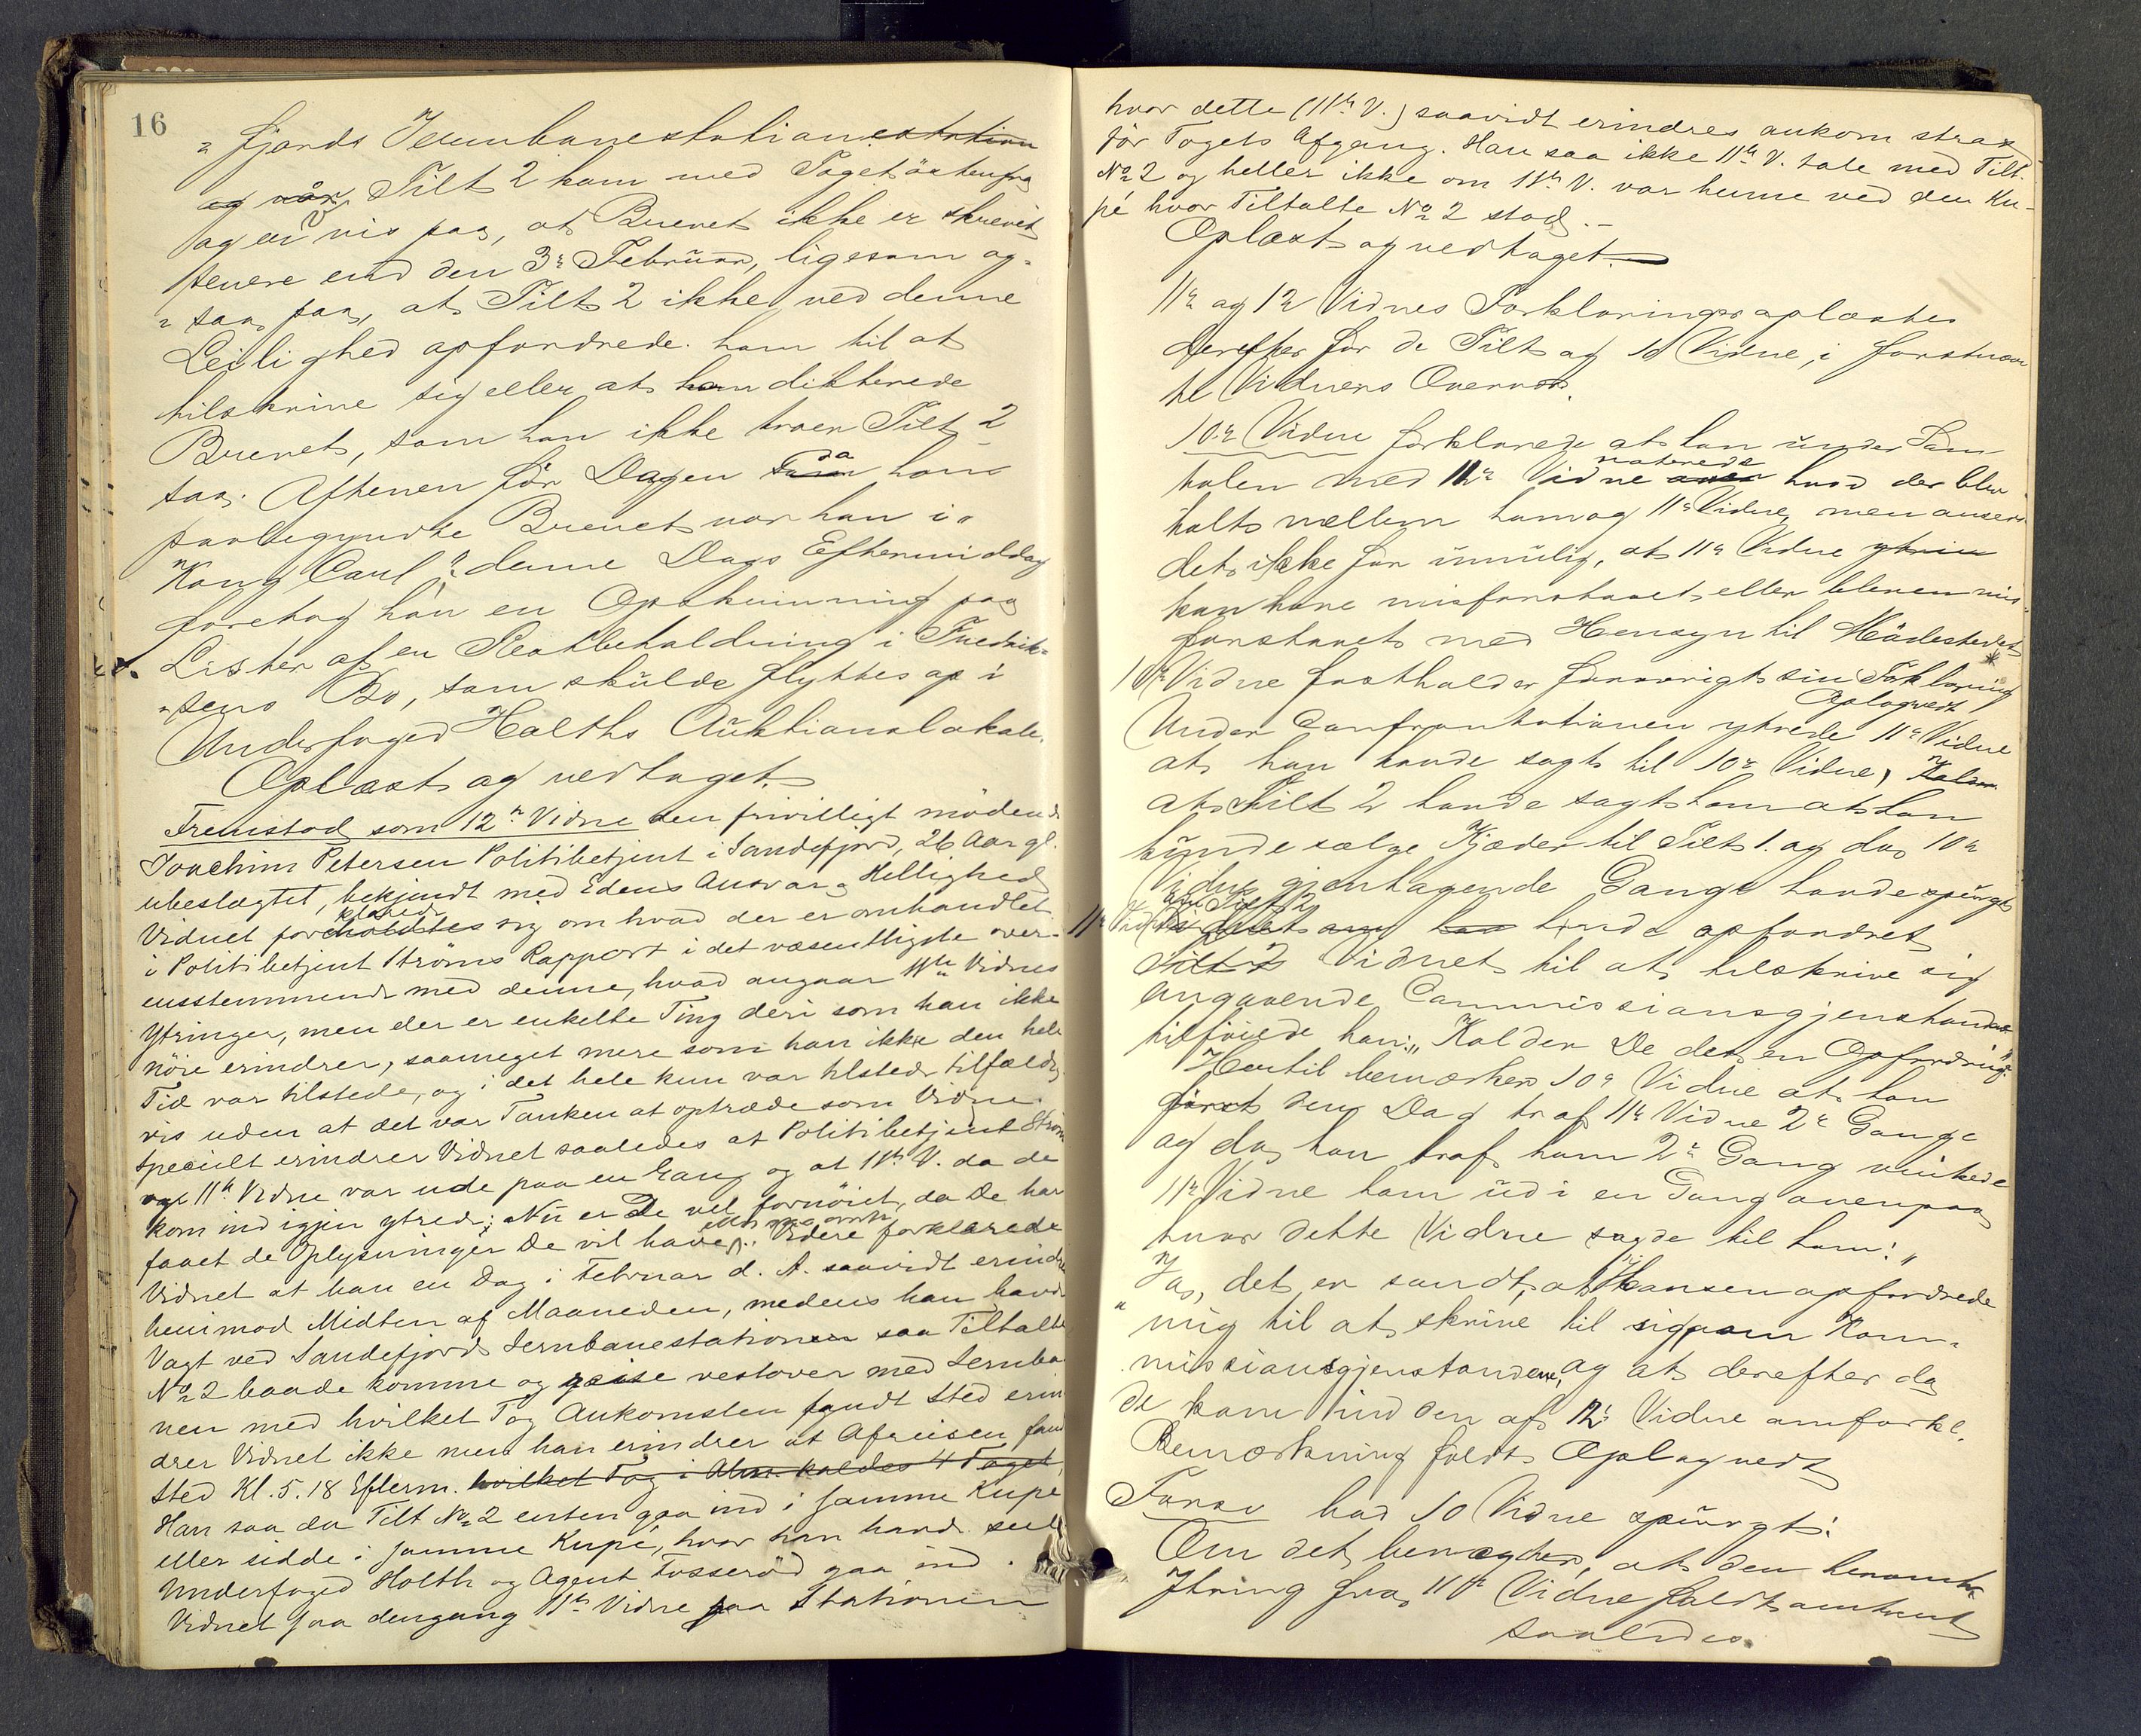 16
fjords Jernbanestation station
og når Tilt 2 kom med Toget østenfra
og er vis paa, at Brevet ikke er skrevet
senere end den 3die Februar, ligesom og-
saa paa, at Tilt 2 ikke ved denne
Leilighed opfordrede ham til at
tilskrive sig eller at han dikterede
Brevet, som han ikke troer Tilt 2
saa. Aftenen før Dagen da han
paabegyndte Brevet var han i
"Kong Carl", denne Dags Eftermiddag
foretog han en Opskrivning paa
Lister af en Restbeholdning i Fredrik-
sens Bo, som skulde flyttes op i
Underfoged Holths Auktionslokale.
Oplæst og vedtaget.
Fremstod som 12te Vidne den frivilligt mødende
Joachim Petersen Politibetjent i Sandefjord, 26 Aar gl.
ubeslægtet, bekjendt med Edens Ansvar og Hellighed
Vidnet forklarede sig om hvad der er omhandlet
i Politibetjent Strøms Rapport i det væsentligste over-
ensstemmende med denne, hvad angaar 11te Vidnes
Ytringer, men der er enkelte Ting deri som han ikke
nøie erindrer, saameget mere som han ikke den hele
Tid var tilstede, og i det hele kun var tilstede tilfældig-
vis uden at det var Tanken at optræde som Vidne.
Specielt erindrer Vidnet saaledes at Politibetjent Strøm
og 11te Vidne var ude paa en Gang og at 11te V. da de
kom ind igjen ytrede: Nu er De vel fornøiet, da De har
faaet de Oplysninger De vil have eller noget. Videre forklarede
Vidnet at han en Dag i Februar d. A. saavidt erindres
henimod Midten af Maaneden, medens han havde
Vagt ved Sandefjords Jernbanestation saa Tiltalte
No 2 baade komme og reise vestover med Jernba-
nen med hvilket Tog Ankomsten fandt Sted erin-
drer Vidnet ikke men han erindrer at Afreisen fandt
Sted Kl. 5.18 Efterm. hvilket Tog i Alm. kaldes 4 Toget.
Han saa da Tilt No 2 enten gaa ind i samme Kupe
eller sidde i samme Kupé, hvor han havde seet
Underfoged Holth og Agent Fosserød gaa ind.
Vidnet saa dengang 11te Vidne paa Stationen
hvor dette (11te V.) saavidt erindres ankom strax
før Togets Afgang. Han saa ikke 11te V. tale med Tilt.
No 2 og heller ikke om 11te V. var henne ved den Ku-
pé hvor Tiltalte No 2 stod.
Oplæst og vedtaget.
11te og 12te Vidnes Forklaringer oplæstes
derefter for de Tilt og 10 Vidne, i førstnævn
te Vidners Overvær.
10de Vidne forklarede at han under Sam
talen med 11te Vidne noterede hvad der blev
talt mellem ham og 11te Vidne, men anser
det ikke for umulig, at 11te Vidne
kan have misforstaaet eller bleven mis-
forstaaet med Hensyn til Mødestedet
10de Vidne fastholder forøvrigt sin Forklaring
Opl og vedt
Under Confrontationen ytrede 11te Vidne
at han havde sagt til 10de Vidne,
at Tilt 2 havde sagt ham at han
kunde sælge Kjæder til Tilt 1. og da 10de
Vidne gjentagende Gange havde spurgt
11te Vid om Tilt 2 havde opfordret
Tilt 2 Vidnet til at tilskrive sig
angaaende Commissionsgjenstandene
tilføiede han: „Kalder De det en Opfordring".
Hertil bemærker 10de Vidne at han
først den Dag traf 11te Vidne 2de Gange
og da han traf ham 2den Gang vinkede
11te Vidne ham ud i en Gang ovenpaa
hvor dette Vidne sagde til ham: „
Ja, det er sandt, at Hansen opfordrede
mig til at skrive til sig om Kom-
missionsgjenstandene, og at derefter da
de kom ind den af 12te Vidne omforkl.
Bemærkning faldt Opl og vedt
Forsv bad 10 Vidne spurgt:
Om det benægter, at den benævnte
Ytring fra 11te Vidne faldt omtrent
saaledes.